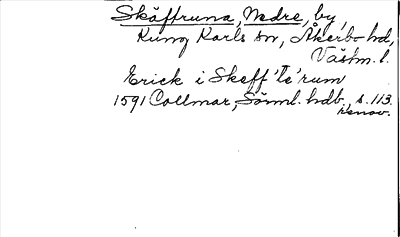 Skäffruna, Nedre, by,
Kung Karls sn, Åkerbo hd,
Västm. l.
Erick i Skeff'te'rum
1591 Collmar, Sörml. hdb., s. 113.